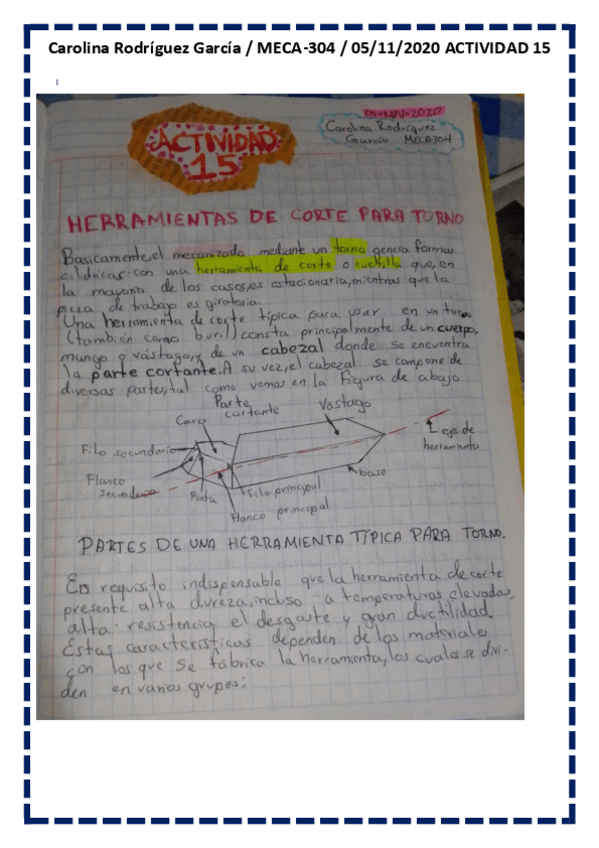 Carolina Rodríguez García / MECA-304 / 05/11/2020 ACTIVIDAD 15
05-NOV-2020
Carolina Rodríguez
García MECA304
ACTIVIDAD
15
HERRAMIENTAS DE CORTE PARA TORNO
Basicamente,el mecanizado mediante un torno genera formas
cilídricas:con una herramienta de corte o cuchilla que,en
la mayoria de los casos,es estacionaria,mientras que la
pieza de trabajo es giratoria.
Una herramienta de corte típica para usar en un torno
(también como buril) consta principalmente de un cuerpo,
mango o vástago,y de un cabezal donde se encuentra
la parte cortante.A su vez,el cabezal se compone de
diversas partes,tal como vemos en la Figura de abajo
Parte
cortante
Vástago
Cara
Eje de
herramienta
Filo secundario
Flanco
secundario
Punta
Filo principal
Flanco principal
base
PARTES DE UNA HERRAMIENTA TÍPICA PARA TORNO.
Es requisito indispensable que la herramienta de corte
presente alta dureza,incluso a temperaturas elevadas,
alta resistencia el desgaste y gran ductilidad.
Estas características dependen de los materiale
con los que se fábrica la herramienta,los cuales se divi-
den en varios grupos: